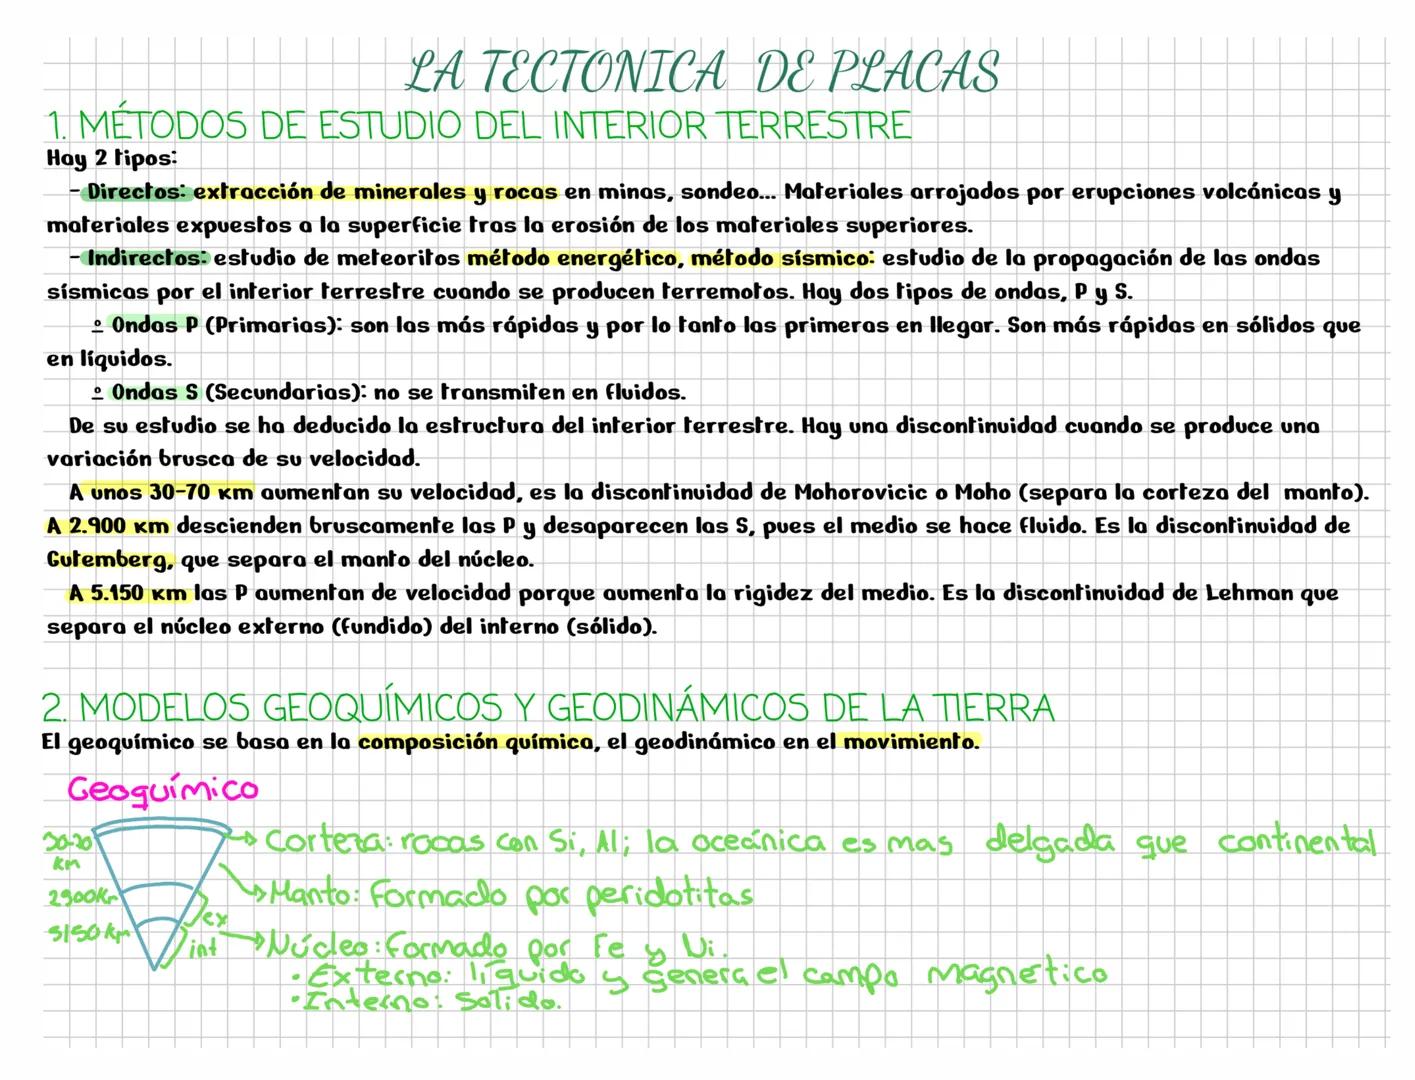 LA TECTONICA DE PLACAS
1. MÉTODOS DE ESTUDIO DEL INTERIOR TERRESTRE
Hay 2 tipos:
- Directos: extracción de minerales y rocas en minas, sondeo... Materiales arrojados por erupciones volcánicas y
materiales expuestos a la superficie tras la erosión de los materiales superiores.
- Indirectos: estudio de meteoritos método energético, método sísmico: estudio de la propagación de las ondas
sísmicas por el interior terrestre cuando se producen terremotos. Hay dos tipos de ondas, P y S.
º Ondas P (Primarias): son las más rápidas y por lo tanto las primeras en llegar. Son más rápidas en sólidos que
en líquidos.
º Ondas S (Secundarias): no se transmiten en fluidos.
De su estudio se ha deducido la estructura del interior terrestre. Hay una discontinuidad cuando se produce una
variación brusca de su velocidad.
A unos 30-70 km aumentan su velocidad, es la discontinuidad de Mohorovicic o Moho (separa la corteza del manto).
A 2.900 km descienden bruscamente las P y desaparecen las S, pues el medio se hace fluido. Es la discontinuidad de
Gutemberg, que separa el manto del núcleo.
A 5.150 km las P aumentan de velocidad porque aumenta la rigidez del medio. Es la discontinuidad de Lehman que
separa el núcleo externo (fundido) del interno (sólido).
2. MODELOS GEOQUÍMICOS Y GEODINÁMICOS DE LA TIERRA
El geoquímico se basa en la composición química, el geodinámico en el movimiento.
Geoquímico
km
Corteza: rocas con Si, Al; la oceánica es mas delgada que continental
2900Km
Manto: Formado por peridotitas
5150 Km
ex
int
Núcleo: Formado por Fe y Ni.
• Externo: líquido y genera el campo magnético
• Interno: Solido.